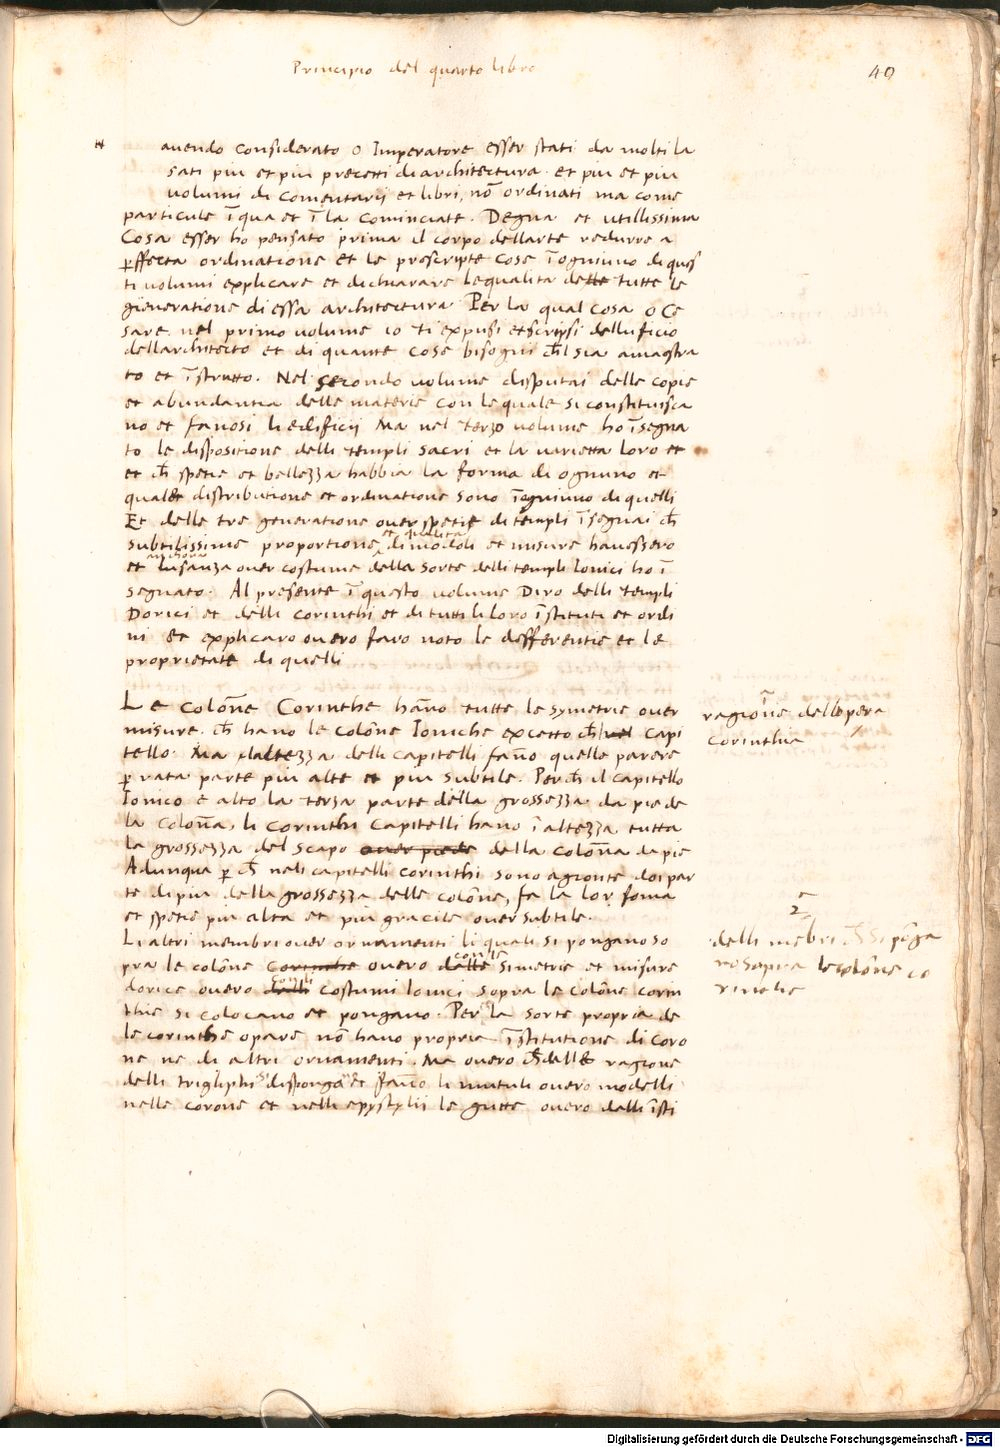 Principio del quarto libro
40
H
auendo considerato o Imperatore esser stati da molti la
sati piu et piu precetti di architectura et piu et piu
volumi di comentarij et libri, nō ordinati ma come
particule ī qua et ī la cominciate. Degna et utilissima
Cosa esser ho pensato prima il corpo dellarte redurre a
ꝑffecta ordinatione et le proscripte cose ī ogniuno di ques
ti volumi explicare et dichiarare le qualita delle tutte le
gieneratione di essa architectura. Per la qual cosa o Ce
sare nel primo volume io ti expusi et scripsi delluficio
dellarchitecto et di quante cose bisogni ch̄l sia amaestra
to et īstrutto. Nel secondo volume disputai delle copie
et abundantia delle materie con le quale si constituisca
no et fanosi li edificij Ma nel terzo volume ho īsegna
to le dispositione delli templi sacri et la varietta loro et
et ch̄ spetie et bellezza habbia la forma di ognuno et
quale distributione et ordinatione sono ī ogniuno di quelli
Et delle tre generatione over spetie di templi īsegnai ch̄
et qualita
subtilissime proportione di modoli et misure havessero
anchora
et lusanza over costume della sorte delli templi Ionici ho ī
segnato. Al presente ī questo volume Diro delli templi
Dorici et delli corinthi et di tutti li loro īstituti et ordi
ni et explicaro overo faro noto le defferentie et le
proprietate di quelli
Le colōne Corinthe hāno tutte le symetrie over
misure ch̄ hano le colōne Ioniche excetto ch̄ nel Capi
tello. Ma laltezza delli capitelli fāno quelle parere
ꝑ rata parte piu alte et piu subtile. Perch̄ il capitello
Ionico e alto la terza parte della grossezza da pie de
la colōna, li corinthi Capitelli hano ī altezza tutta
la grossezza del scapo over piede della colōna da pie
Adunqua ꝑ ch̄ neli capitelli corinthi sono agionte doi par
te di piu della grossezza delle colōne, fa la lor forma
et spetie piu alta et piu gracile over subtile.
ragione dellopera
corinthia
Li altri membri over ornamenti li quali si pongano so
con le
pra le colōne Corinthe overo dalle simetrie et misure
con li
dorice overo dalli costumi Ionici sopra le colōne corin
thie si colocano et pongano. Per la sorte propria de
le corinthe opare nō hano propria īstitutione di coro
ne ne di altri ornamenti. Ma overo ch̄ delle ragione
delli trigliphi si disponga et fano li mutuli overo modelli
nelle corone et nelli epystylii le gutte overo dalli īsti
2
delli mēbri ch̄ si pōga
no sopra le colōne co
rinthe
Digitalisierung gefördert durch die Deutsche Forschungsgemeinschaft - DFG